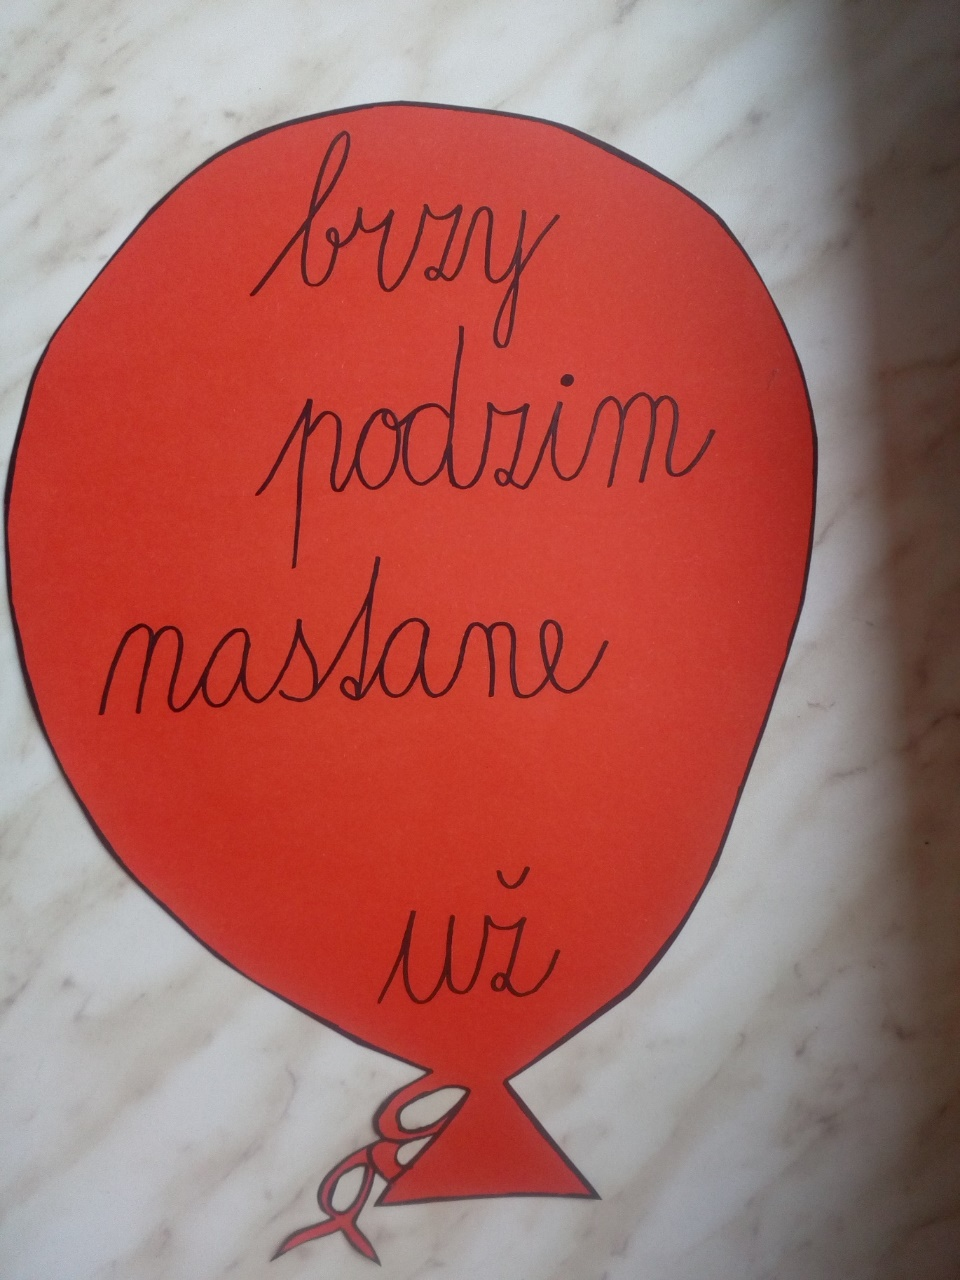 brzy
podzim
nastane
už